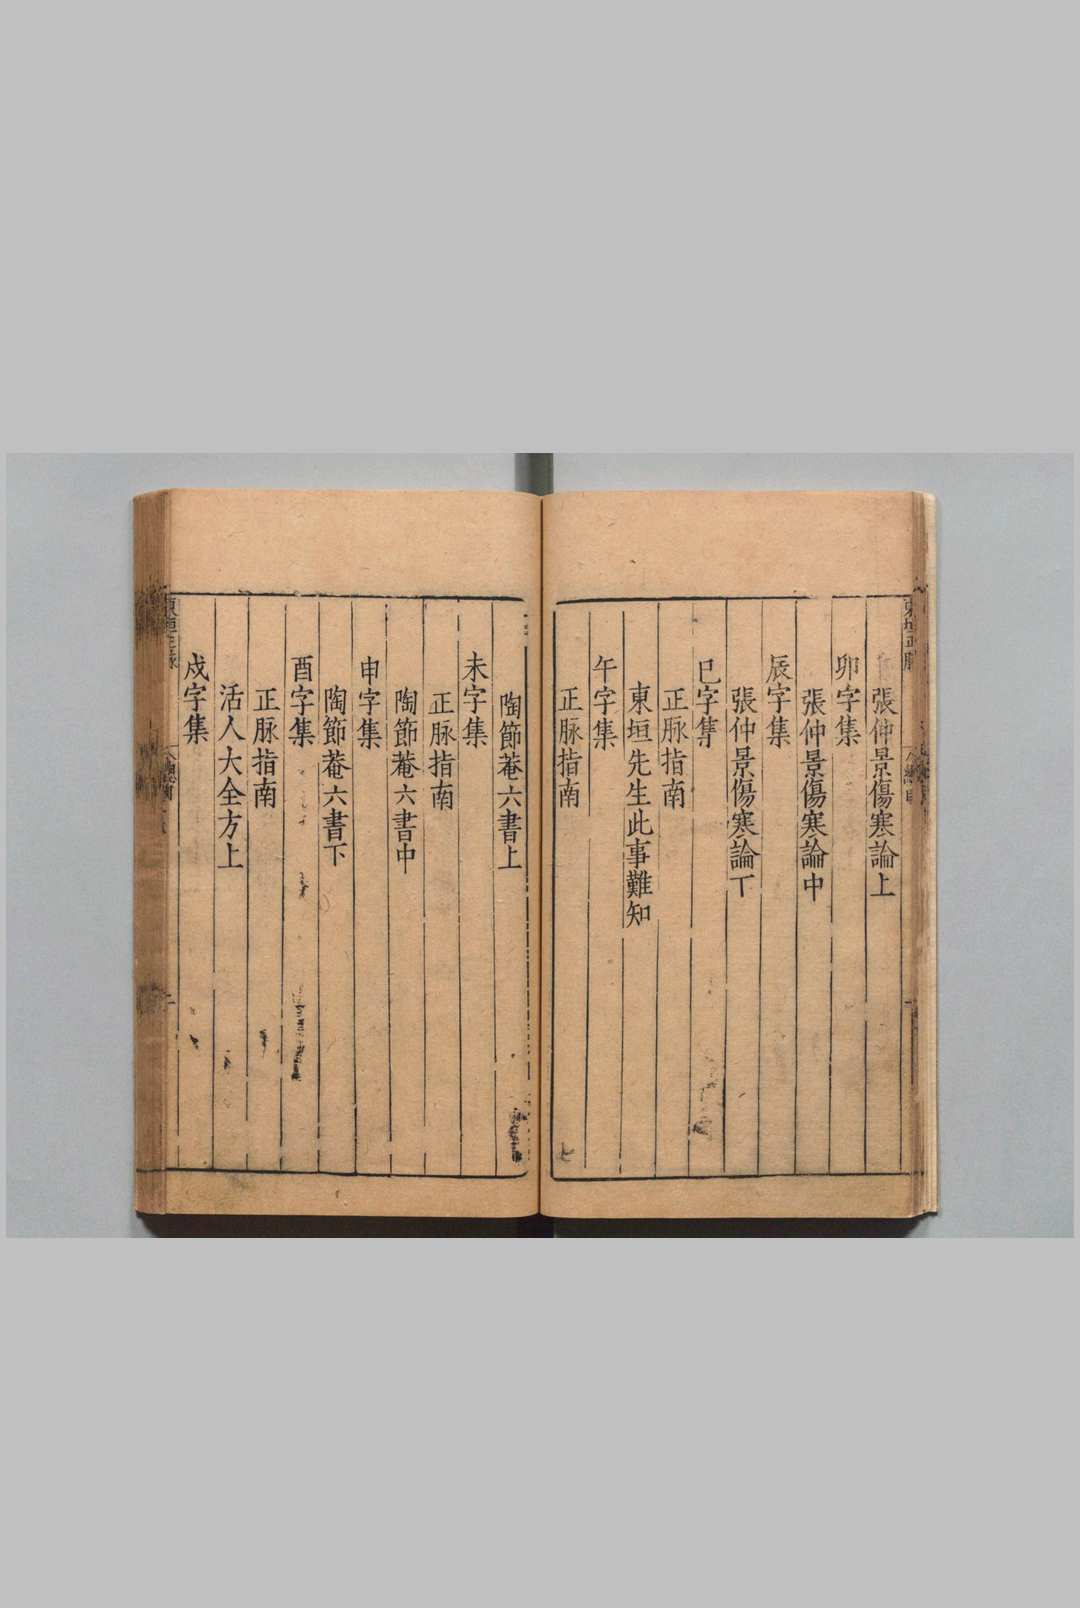 張仲景傷寒論上
卯字集
張仲景傷寒論中
辰字集
張仲景傷寒論下
巳字集
正脉指南
東垣先生此事難知
午字集
正脉指南
陶節菴六書上
未字集
正脉指南
陶節菴六書中
申字集
陶節菴六書下
酉字集
正脉指南
活人大全方上
戍字集
東垣正脉